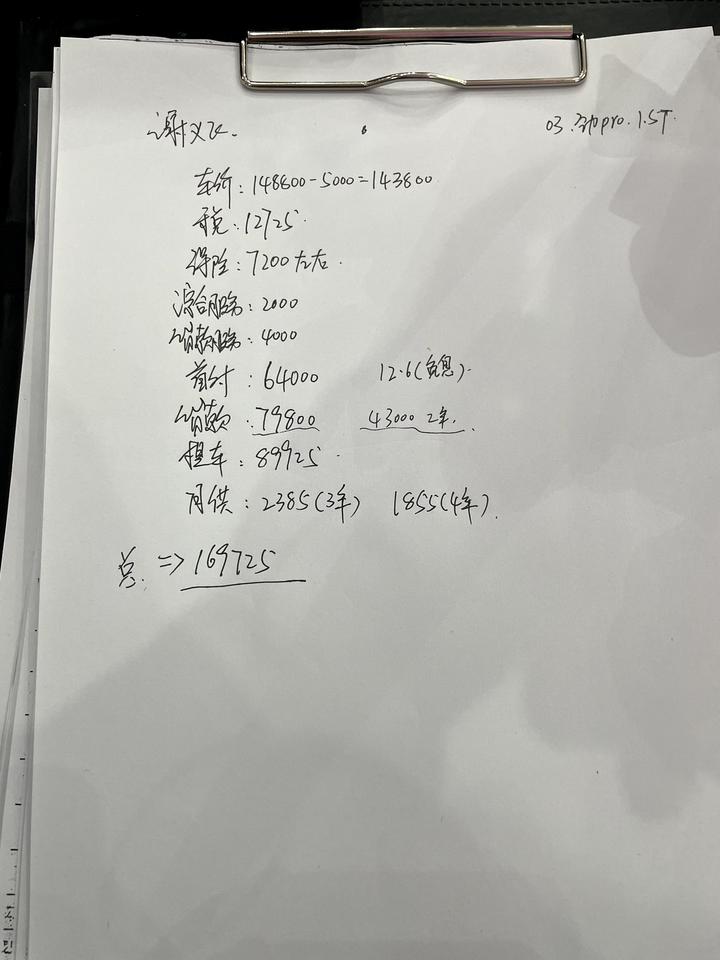 谢文 03.劲pro.1.5T.
车价:148800-5000=143800
税:12725.
保险:7200左右.
综合服务:2000
贷款服务:4000
首付:64000 12.6(免息).
贷款:79800 43000 2年.
提车:89925.
月供:2385(3年) 1855(4年).
总.=>169725